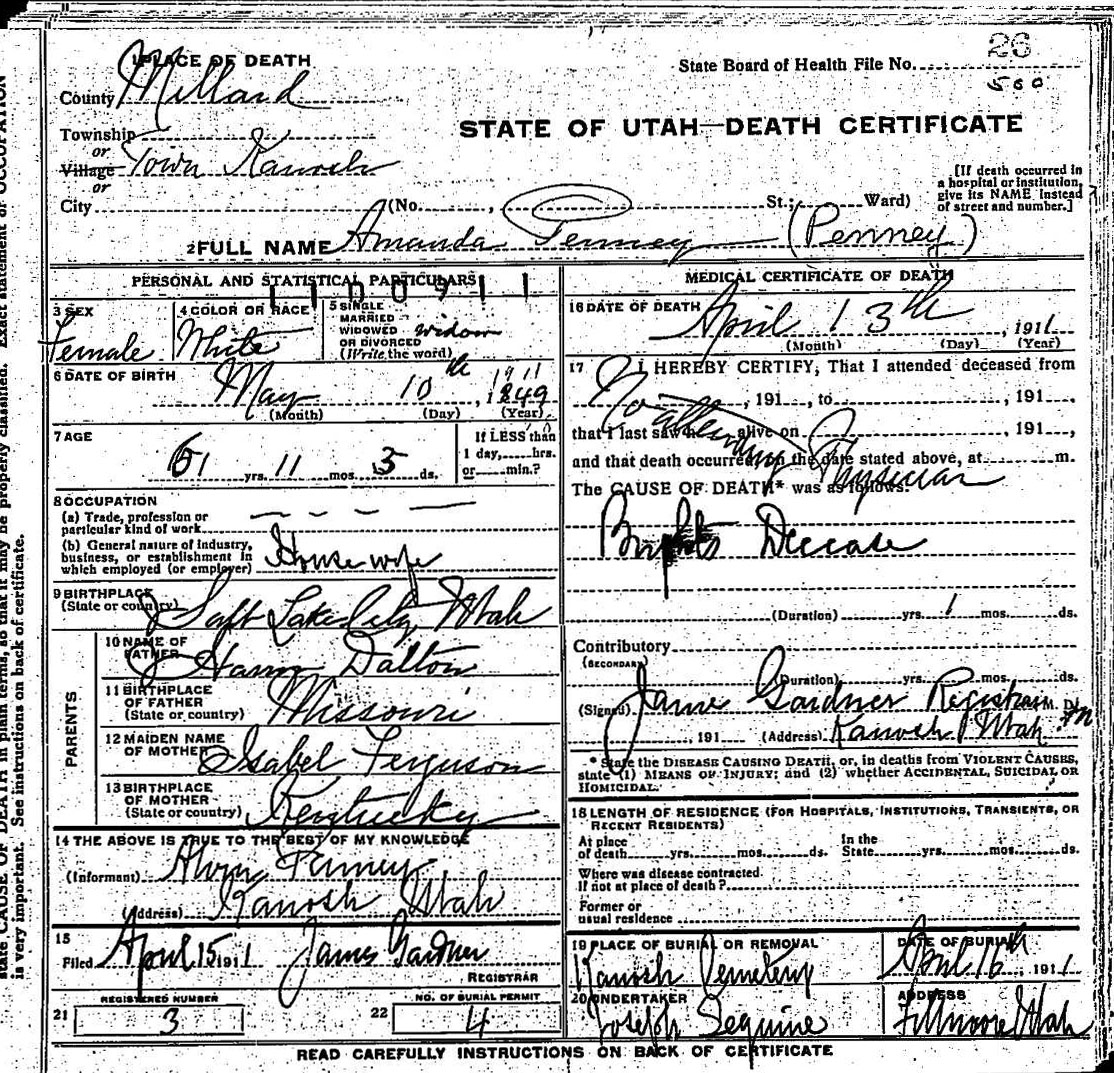 26
1 PLACE OF DEATH
State Board of Health File No.
500
County Millard
STATE OF UTAH—DEATH CERTIFICATE
Township
or
Village Town Kanosh
or
City (No. , St.; Ward)
[If death occurred in
a hospital or institution,
give its NAME instead
of street and number.]
2 FULL NAME Amanda Penney (Penney)
PERSONAL AND STATISTICAL PARTICULARS
3 SEX
Female
4 COLOR OR RACE
White
5 SINGLE
MARRIED
WIDOWED
OR DIVORCED
(Write the word)
widow
6 DATE OF BIRTH
1911
May 10th, 1849
(Month) (Day) (Year)
7 AGE
61 yrs. 11 mos. 3 ds.
If LESS than
1 day, hrs.
or min.?
8 OCCUPATION
(a) Trade, profession or
particular kind of work
(b) General nature of industry,
business, or establishment in
which employed (or employer)
House wife
9 BIRTHPLACE
(State or country)
Salt Lake City Utah
PARENTS
10 NAME OF
FATHER
Dalton
11 BIRTHPLACE
OF FATHER
(State or country)
Missouri
12 MAIDEN NAME
OF MOTHER
Isabel Ferguson
13 BIRTHPLACE
OF MOTHER
(State or country)
Kentucky
14 THE ABOVE IS TRUE TO THE BEST OF MY KNOWLEDGE
(Informant) Alvin Penney
(Address) Kanosh Utah
15
Filed April 15 1911 James Gardner
REGISTRAR
REGISTERED NUMBER
21 3
NO. OF BURIAL PERMIT
22 4
MEDICAL CERTIFICATE OF DEATH
16 DATE OF DEATH
April 13th, 1911
(Month) (Day) (Year)
17 I HEREBY CERTIFY, That I attended deceased from
, 191 , to , 191 ,
that I last saw h alive on , 191 ,
and that death occurred, on the date stated above, at m.
No attending Physician
The CAUSE OF DEATH* was as follows:
Brights Deceate
(Duration) yrs. 1 mos. ds.
Contributory
(SECONDARY)
(Duration) yrs. mos. ds.
(Signed) Jame Gardner Registrar M. D.
, 191 (Address) Kanosh Utah
* State the DISEASE CAUSING DEATH, or, in deaths from VIOLENT CAUSES,
state (1) MEANS OF INJURY; and (2) whether ACCIDENTAL, SUICIDAL OR
HOMICIDAL.
18 LENGTH OF RESIDENCE (FOR HOSPITALS, INSTITUTIONS, TRANSIENTS, OR
RECENT RESIDENTS)
At place
of death yrs. mos. ds.
In the
State yrs. mos. ds.
Where was disease contracted
If not at place of death?
Former or
usual residence
19 PLACE OF BURIAL OR REMOVAL
Kanosh Cemetery
DATE OF BURIAL
April 16th, 1911
20 UNDERTAKER
Joseph Seguine
ADDRESS
Fillmore Utah
READ CAREFULLY INSTRUCTIONS ON BACK OF CERTIFICATE
state CAUSE OF DEATH in plain terms, so that it may be properly classified. Exact statement of OCCUPATION
is very important. See instructions on back of certificate.